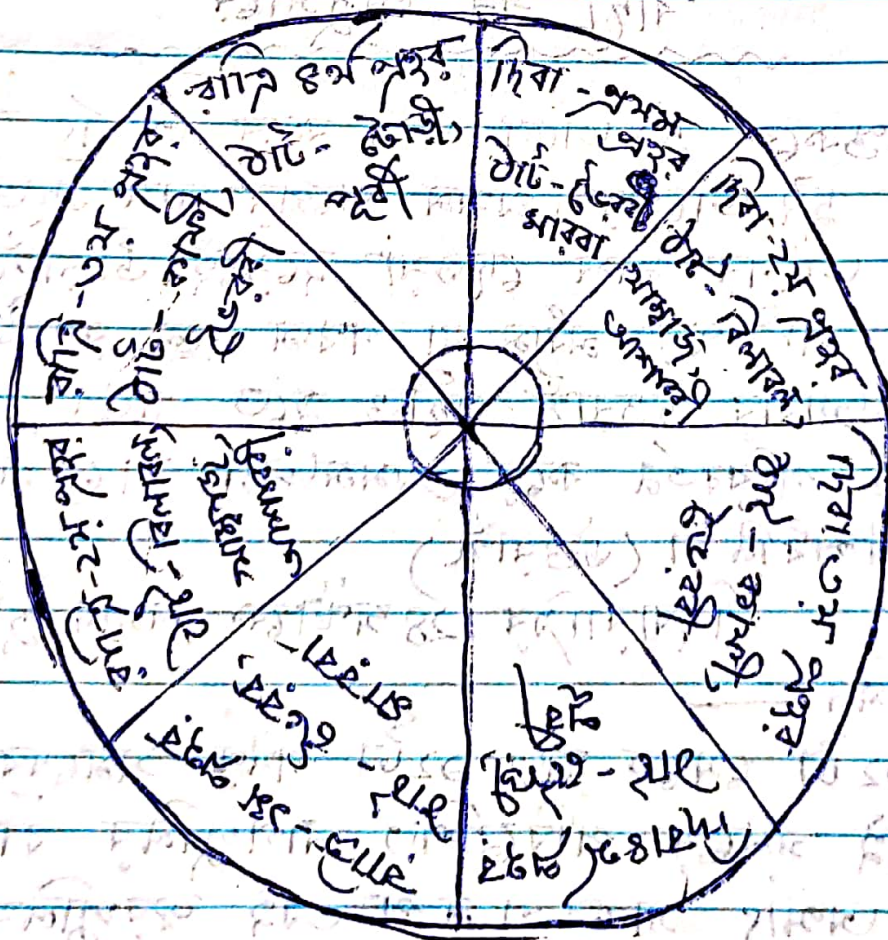 দিবা - প্রথম
প্রহর
ঠাট - ভৈরব
মারবা
দিবা - ২য় প্রহর
ঠাট - বিলাবল,
খাম্বাজ,
আশাবরী
দিবা ৩য় প্রহর
ঠাট - কাফী
ভৈরবী
দিবা ৪র্থ প্রহর
ঠাট - তোড়ী
পূর্বী
রাত্রি - ১ম প্রহর
ঠাট - ভৈরব,
মারবা -
রাত্রি - ২য় প্রহর
ঠাট - বিলাবল
খাম্বাজ
আশাবরী
রাত্রি - ৩য় প্রহর
ঠাট - কাফি
ভৈরবী
রাত্রি ৪র্থ প্রহর
ঠাট - তোড়ী,
পূরবী